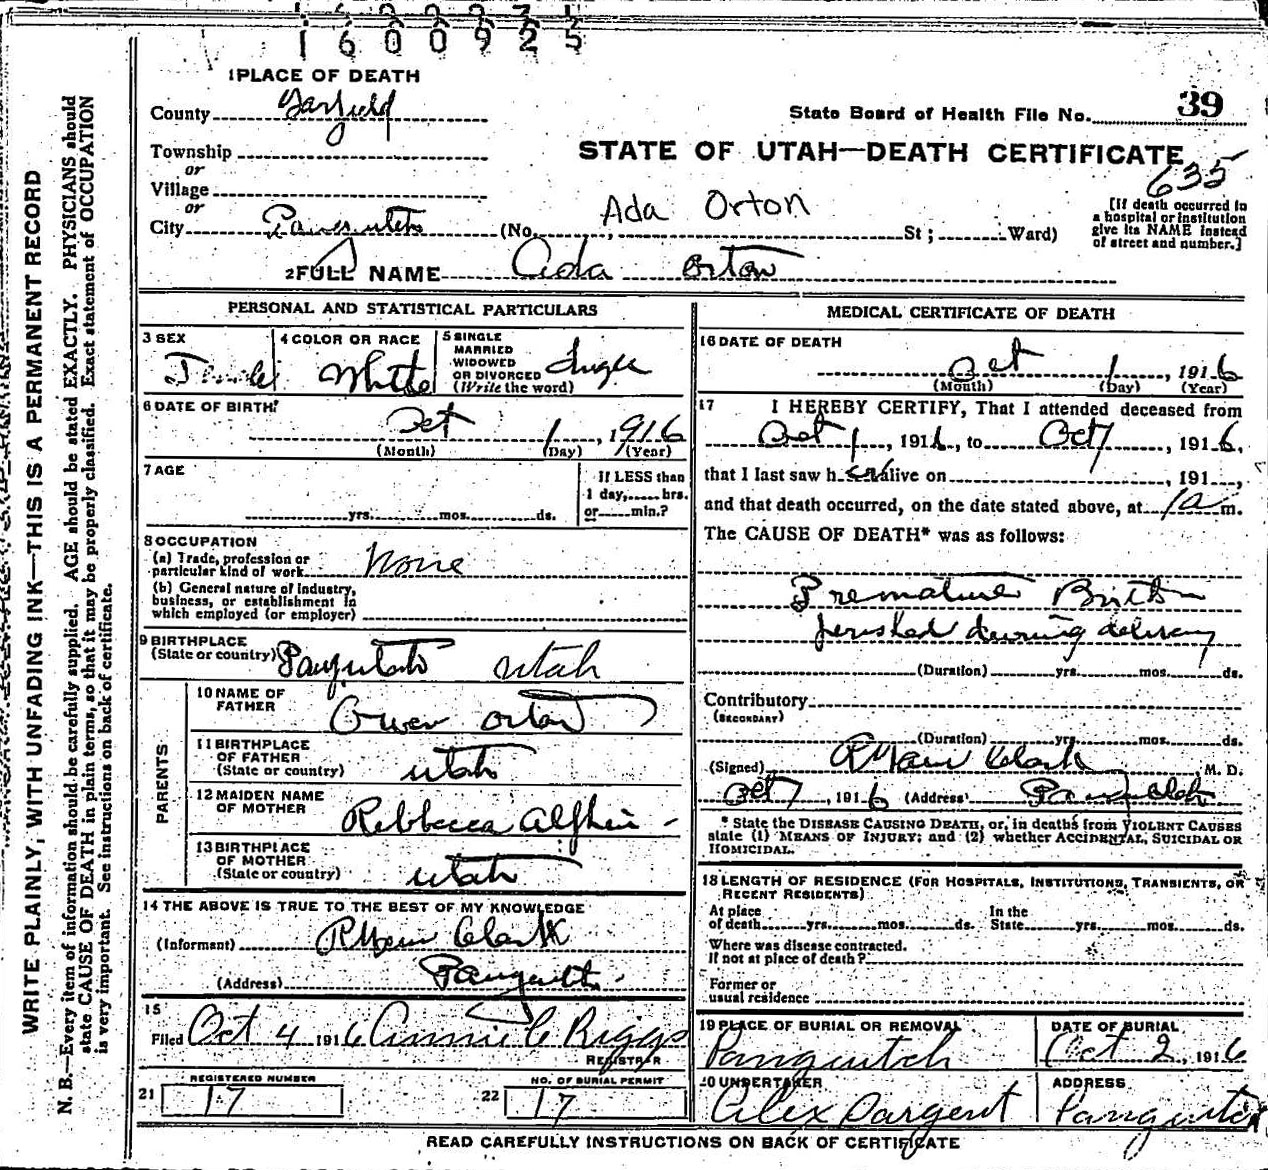 1600925
1 PLACE OF DEATH
County Garfield
State Board of Health File No. 39
Township
or
Village
or
City Panguitch (No. St ; Ward)
STATE OF UTAH—DEATH CERTIFICATE
635
Ada Orton
[If death occurred in
a hospital or institution
give its NAME instead
of street and number.]
2 FULL NAME Ada Orton
PERSONAL AND STATISTICAL PARTICULARS
3 SEX Female
4 COLOR OR RACE White
5 SINGLE
MARRIED
WIDOWED
OR DIVORCED
(Write the word) Single
6 DATE OF BIRTH
Oct 1, 1916
(Month) (Day) (Year)
7 AGE
yrs. mos. ds.
If LESS than
1 day, hrs.
or min.?
8 OCCUPATION
(a) Trade, profession or
particular kind of work None
(b) General nature of industry,
business, or establishment in
which employed (or employer)
9 BIRTHPLACE
(State or country) Panguitch Utah
PARENTS
10 NAME OF
FATHER Owen Orton
11 BIRTHPLACE
OF FATHER
(State or country) Utah
12 MAIDEN NAME
OF MOTHER Rebbecca
13 BIRTHPLACE
OF MOTHER
(State or country) Utah
14 THE ABOVE IS TRUE TO THE BEST OF MY KNOWLEDGE
(Informant) Clark
(Address) Panguitch
15
Filed Oct 4 1916 Annie C Riggs
REGISTRAR
21 REGISTERED NUMBER
17
22 NO. OF BURIAL PERMIT
17
MEDICAL CERTIFICATE OF DEATH
16 DATE OF DEATH
Oct 1, 1916
(Month) (Day) (Year)
17 I HEREBY CERTIFY, That I attended deceased from
Oct 1, 1916, to Oct 1, 1916,
that I last saw h er alive on , 191 ,
and that death occurred, on the date stated above, at 1 a m.
The CAUSE OF DEATH* was as follows:
Premature Birth
perished during delivery
(Duration) yrs. mos. ds.
Contributory
(SECONDARY)
(Duration) yrs. mos. ds.
(Signed) Clark M. D.
Oct 7, 1916 (Address) Panguitch
* State the DISEASE CAUSING DEATH, or, in deaths from VIOLENT CAUSES
state (1) MEANS OF INJURY; and (2) whether ACCIDENTAL, SUICIDAL OR
HOMICIDAL.
18 LENGTH OF RESIDENCE (FOR HOSPITALS, INSTITUTIONS, TRANSIENTS, OR
RECENT RESIDENTS)
At place
of death yrs. mos. ds.
In the
State yrs. mos. ds.
Where was disease contracted.
If not at place of death?
Former or
usual residence
19 PLACE OF BURIAL OR REMOVAL
Panguitch
DATE OF BURIAL
Oct 2, 1916
20 UNDERTAKER
Alex Sargent
ADDRESS
Panguitch
READ CAREFULLY INSTRUCTIONS ON BACK OF CERTIFICATE
WRITE PLAINLY, WITH UNFADING INK—THIS IS A PERMANENT RECORD
N. B.—Every item of information should be carefully supplied. AGE should be stated EXACTLY. PHYSICIANS should
state CAUSE OF DEATH in plain terms, so that it may be properly classified. Exact statement of OCCUPATION
is very important. See instructions on back of certificate.